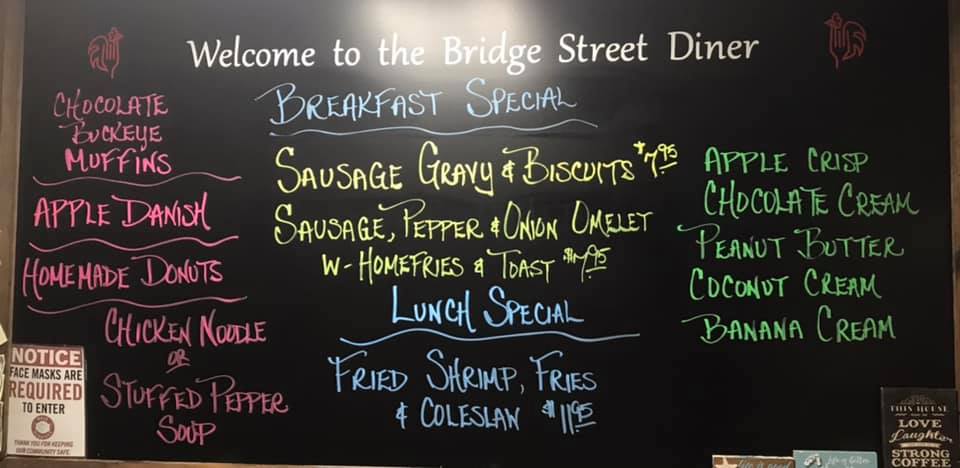 Welcome to the Bridge Street Diner
CHOCOLATE
BUCKEYE
MUFFINS
APPLE DANISH
HOMEMADE DONUTS
CHICKEN NOODLE
OR
STUFFED PEPPER
SOUP
BREAKFAST SPECIAL
SAUSAGE GRAVY & BISCUITS $7.95
SAUSAGE, PEPPER & ONION OMELET
W-HOMEFRIES & TOAST $7.95
LUNCH SPECIAL
FRIED SHRIMP, FRIES
& COLESLAW $11.95
APPLE CRISP
CHOCOLATE CREAM
PEANUT BUTTER
COCONUT CREAM
BANANA CREAM
NOTICE
FACE MASKS ARE
REQUIRED
TO ENTER
THANK YOU FOR KEEPING
OUR COMMUNITY SAFE.
THIS HOUSE
LOVE
Laughter
STRONG
COFFEE